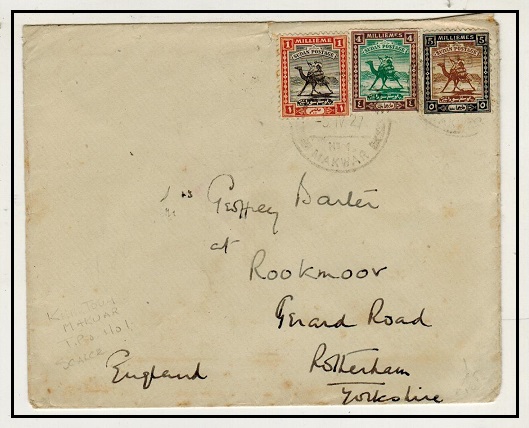 1 MILLIEME 1
SUDAN POSTAGE
4 MILLIEMES 4
SUDAN POSTAGE
5 MILLIEMES 5
SUDAN POSTAGE
MAKWAR
Geoffrey Barter
at
Rookmoor
Gerard Road
Rotherham
Yorkshire
England
MAKWAR